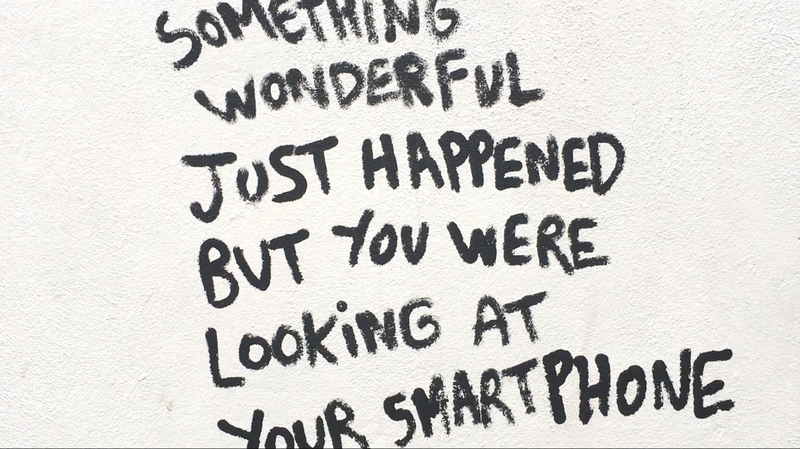 SOMETHING
WONDERFUL
JUST HAPPENED
BUT YOU WERE
LOOKiNG AT
YOUR SMARTPHONE